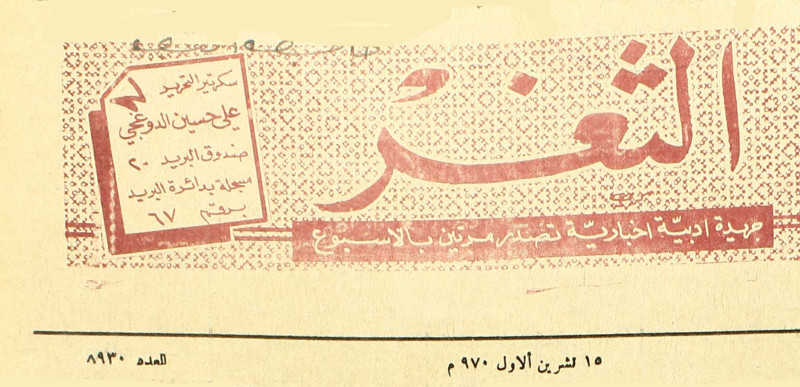 الثغر
جريدة أدبيّة اخباريّة تصدر مرتين بالاسبوع
سكرتير التحرير
علي حسين الدوغجي
صندوق البريد ٢٠
مسجلة بدائرة البريد
برقم ٦٧
١٥ تشرين الاول ٩٧٠ م
العدد ٨٩٣٠